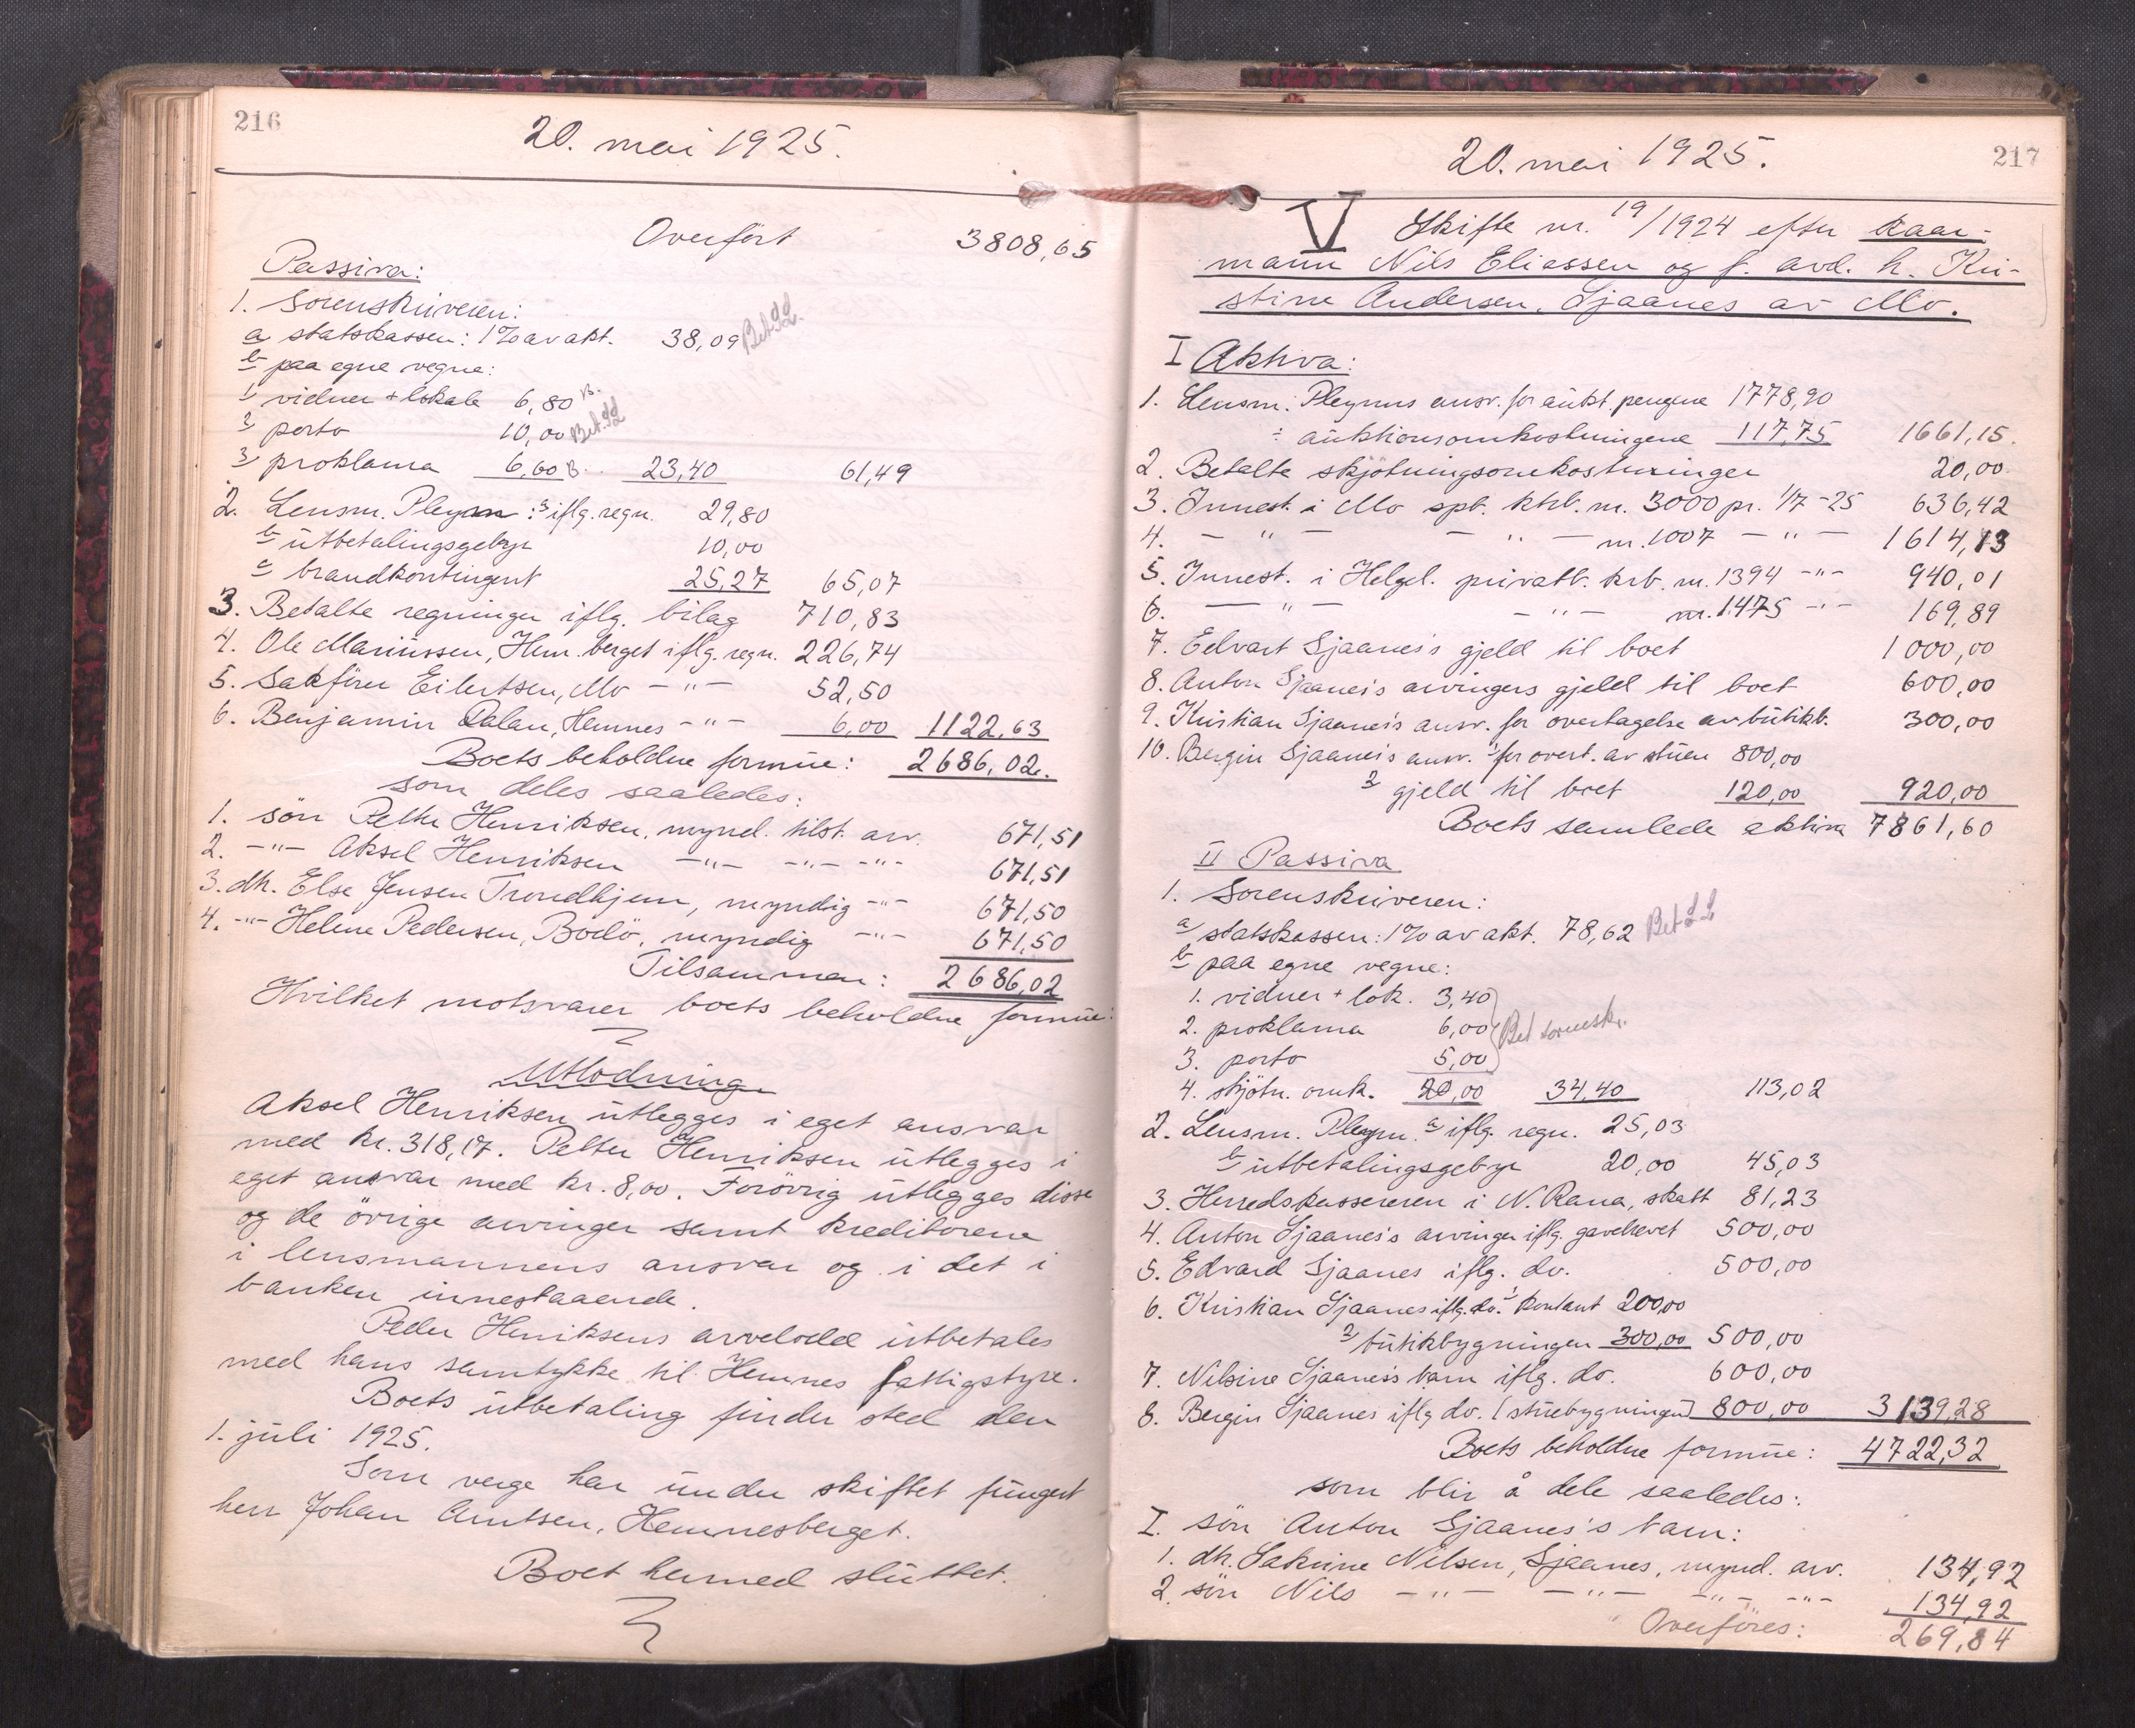 216
20. mai 1925.
Overfört 3808,65
Passiva:
1. Sorenskriveren:
a statskassen: 1% av akt. 38,09 Bet.
b paa egne vegne:
1 vidner + lokale 6,80 B.
2 porto 10,00 Bet.
3 proklama 6,60 B. 23,40 61,49
2. Lensm. Pleym: a iflg. regn. 29,80
b utbetalingsgebyr 10,00
c brandkontingent 25,27 65,07
3. Betalte regninger iflg. bilag 710,83
4. Ole Mariussen, Hem.berget iflg. regn. 226,74
5. Sakförer Eilertsen, Mo -"- 52,50
6. Benjamin Dalan, Hemnes -"- 6,00 1122,63
Boets beholdne formue: 2686,02.
som deles saaledes:
1. sön Petter Henriksen, mynd. tilst. arv. 671,51
2. -"- Aksel Henriksen -"- -"- -"- 671,51
3. dh. Else Jensen Trondhjem, myndig -"- 671,50
4. -"- Helene Pedersen, Bodö, myndig -"- 671,50
Tilsammen: 2686,02
Hvilket motsvarer boets beholdne formue.
Utlodning
Aksel Henriksen utlegges i eget ansvar
med kr. 318,17. Petter Henriksen utlegges i
eget ansvar med kr. 8,00. Forövrig utlegges disse
og de övrige arvinger samt kreditorene
i lensmannens ansvar og i det i
banken innestaaende.
Peder Henriksens arvelodd utbetales
med hans samtykke til Hemnes fattigstyre.
Boets utbetaling finder sted den
1. juli 1925.
Som verge har under skiftet fungert
herr Johan Arntsen, Hemnesberget.
Boet hermed sluttet.
217
20. mai 1925.
V Skifte nr. 19/1924 efter kaar-
mann Nils Eliassen og f. avd. h. Kri-
stine Andersen, Sjaanes av Mo.
I Aktiva:
1. Lensm. Pleyms ansv. for aukt. pengene 1778,90
÷ auktionsomkostningene 117,75 1661,15.
2. Betalte skjötningsomkostninger 20,00
3. Innest. i Mo spb. ktrb. nr. 3000 pr. 1/7-25 636,42
4. - " - - " - nr. 1007 - " - 1614,13
5. Innest. i Helgel. privatb. krb. nr. 1394 -"- 940,01
6. - " - - " - nr. 1475 -"- 169,89
7. Edvart Sjaanes's gjeld til boet 1000,00
8. Anton Sjaanes's arvingers gjeld til boet 600,00
9. Kristian Sjaanes's ansv. for overtagelse av butikb. 300,00
10. Bergin Sjaanes's ansv. 1 for overt. av stuen 800,00
2 gjeld til boet 120,00 920,00
Boets samlede aktiva 7861,60
II Passiva
1. Sorenskriveren:
a statskassen: 1% av akt. 78,62 Bet
b paa egne vegne:
1. vidner + lok. 3,40
2. proklama 6,00 Bet sorenskr.
3. porto 5,00
4. skjötn. omk. 20,00 34,40 113,02
2. Lensm. Pleym. a iflg. regn. 25,03
b utbetalingsgebyr 20,00 45,03
3. Herredskassereren i N. Rana, skatt 81,23
4. Anton Sjaanes's arvinger iflg. gavebrevet 500,00
5. Edvard Sjaanes iflg. do. 500,00
6. Kristian Sjaanes iflg. do. 1 kontant 200,00
2 butikbygningen 300,00 500,00
7. Nilsine Sjaanes's barn iflg. do. 600,00
8. Bergin Sjaanes iflg do. (stuebygningen) 800,00 3139,28
Boets beholdne formue: 4722,32
som blir å dele saaledes:
I. sön Anton Sjaanes's barn:
1. dh. Sakrine Nilsen, Sjaanes, mynd. arv. 134,92
2. sön Nils -"- -"- -"- -"- 134,92
Overföres: 269,84